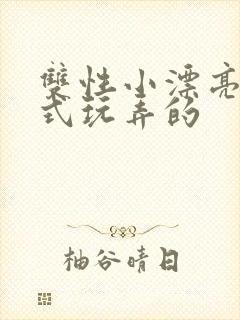 雙性小漂亮
式玩弄的
柚谷晴日